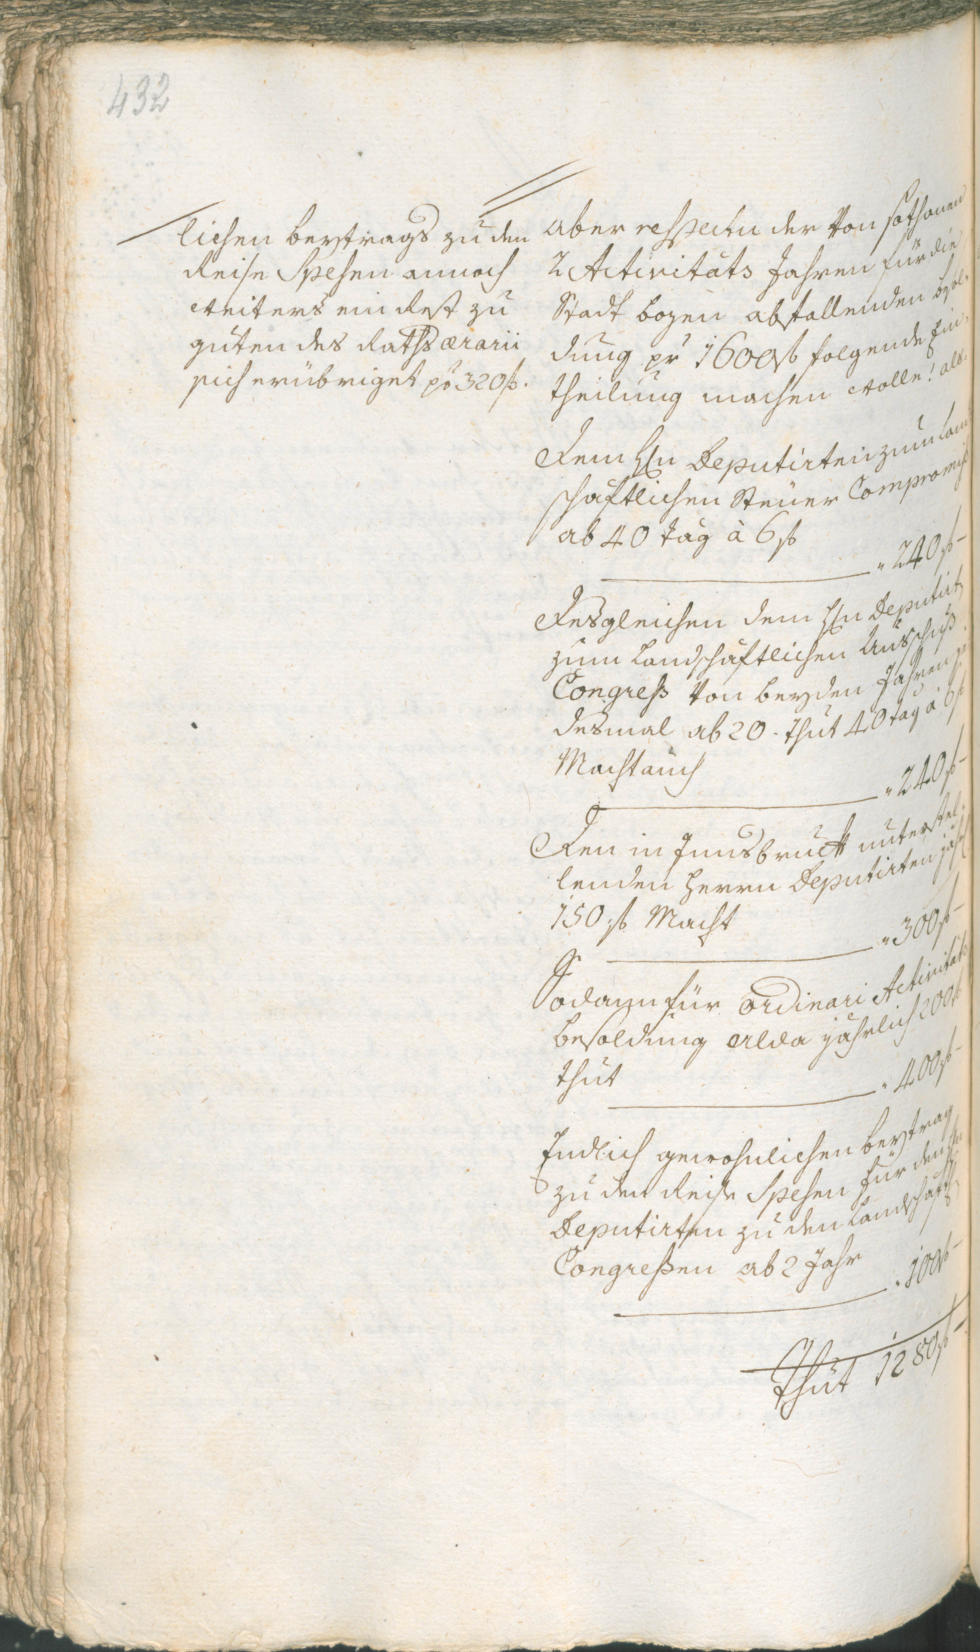 432
lichen beÿtrags zu den
Reise Spesen annoch
weiters ein Rest zu
guten des Raths ærarii
sich erübriget pr 320 f.
aber respectu der von sothanen
2 Activitäts Jahren für die
Stadt bozen abfallenden besol¬
dung pr 1600 f folgende Ein¬
theilung machen wolle! als
Dem H[er]n Deputirten zum Land
schäftlichen Steuer Compromiss
ab 40 tag à 6 f
" 240 f –
Desgleichen dem H[er]n Deputirt
zum Landschäftlichen Ausschuß
Congreß von beÿden Jahren je
desmal ab 20. thut 40 tag à 6 f
Macht auch
" 240 f –
Den in Innsbruckh
lenden Herrn Deputirten jährl
150 f. Macht
" 300 f –
Sodann für ordinari Activitäts
besoldung alda jährlich 200 f
thut
" 400 f –
Endlich gewohnlichen beÿtrag
zu den Reise Spesen für den H[er]n
Deputirten zu den Landschäft
Congreßen ab 2 Jahr
" 100 f –
Thut 1280 f –